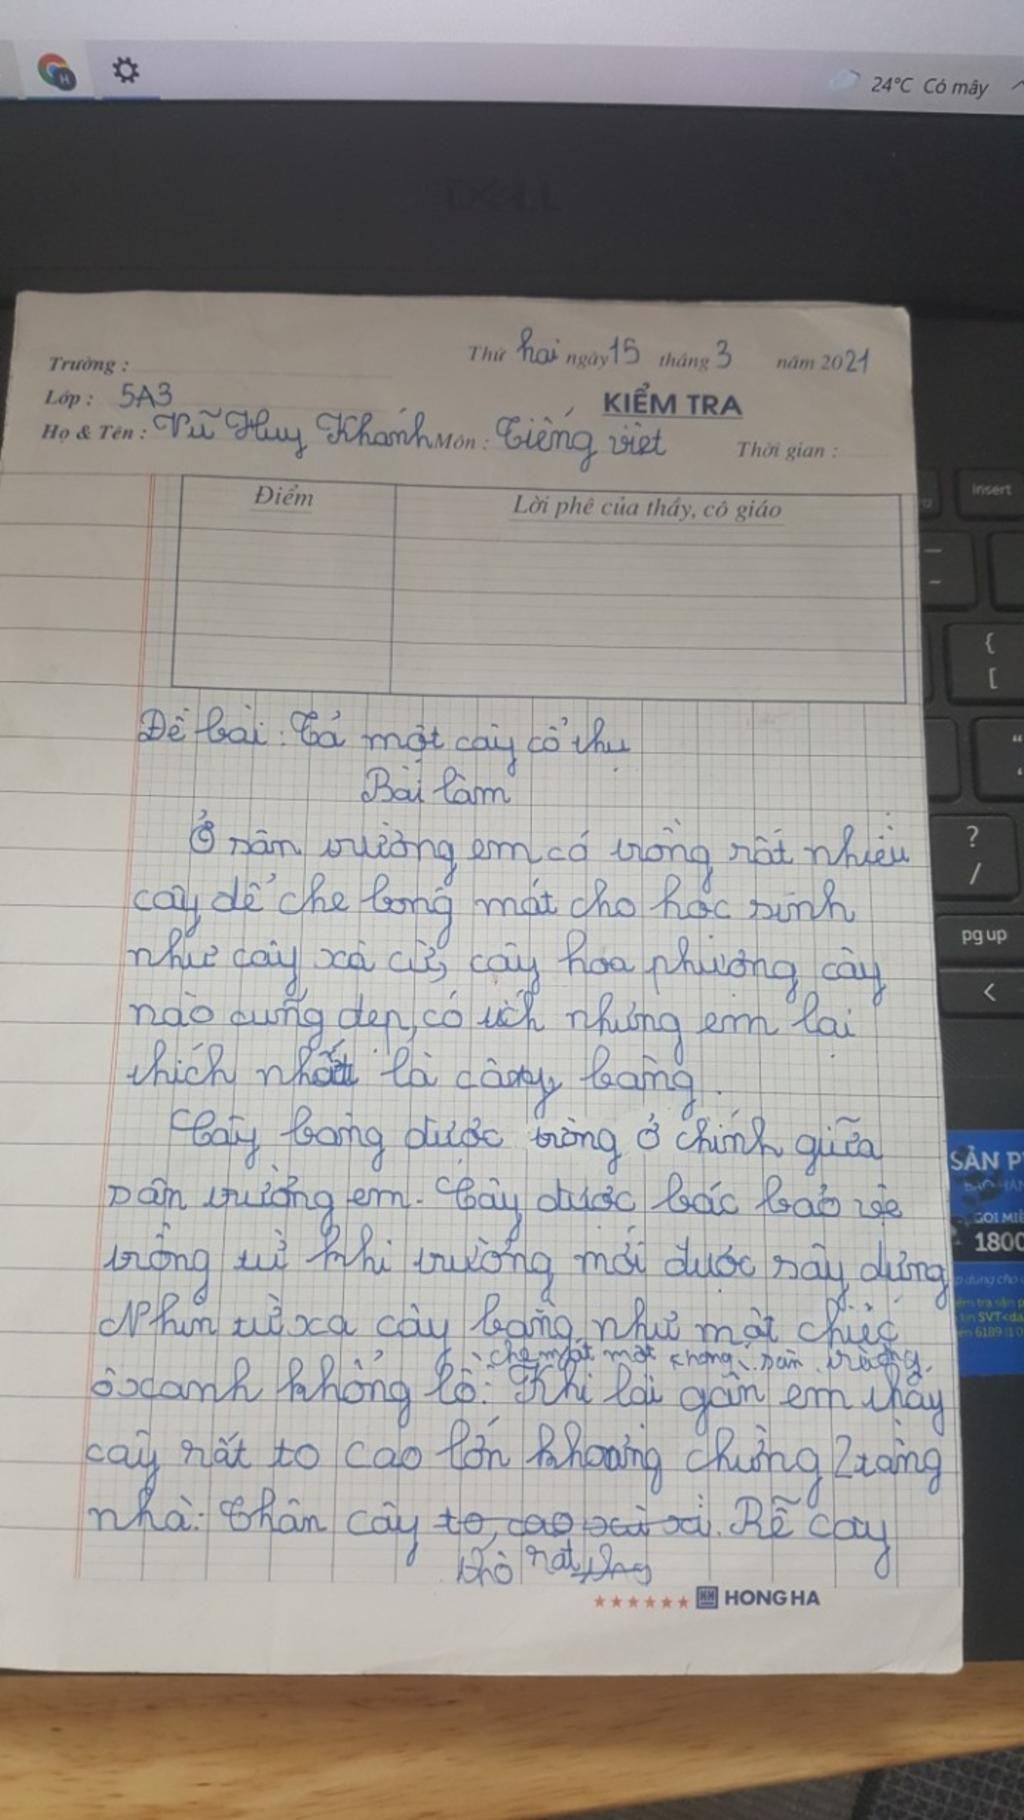 24°C Có mây
DELL
Trường :
Thứ hai ngày 15 tháng 3 năm 2021
Lớp : 5A3
KIỂM TRA
Họ & Tên : Vũ Huy Khánh Môn : Tiếng việt Thời gian :
Điểm
Lời phê của thầy, cô giáo
Đề bài : Tả một cây cổ thụ
Bài làm
Ở sân trường em có trồng rất nhiều
cây để che bóng mát cho học sinh
như cây xà cừ, cây hoa phượng cây
nào cũng đẹp, có ích nhưng em lại
thích nhất là cây bàng.
Cây bàng được trồng ở chính giữa
sân trường em. Cây được bác bảo vệ
trồng từ khi trường mới được xây dựng
Nhìn từ xa cây bàng như một chiếc
che mát một khoảng sân trường.
ô xanh khổng lồ. Khi lại gần em thấy
cây rất to cao lớn khoảng chừng 2 tầng
nhà. Thân cây to, cao xù xì. Rễ cây
thô rất
HONG HA
insert
{
[
?
/
pg up
<
SẢN P
GỌI MI
1800